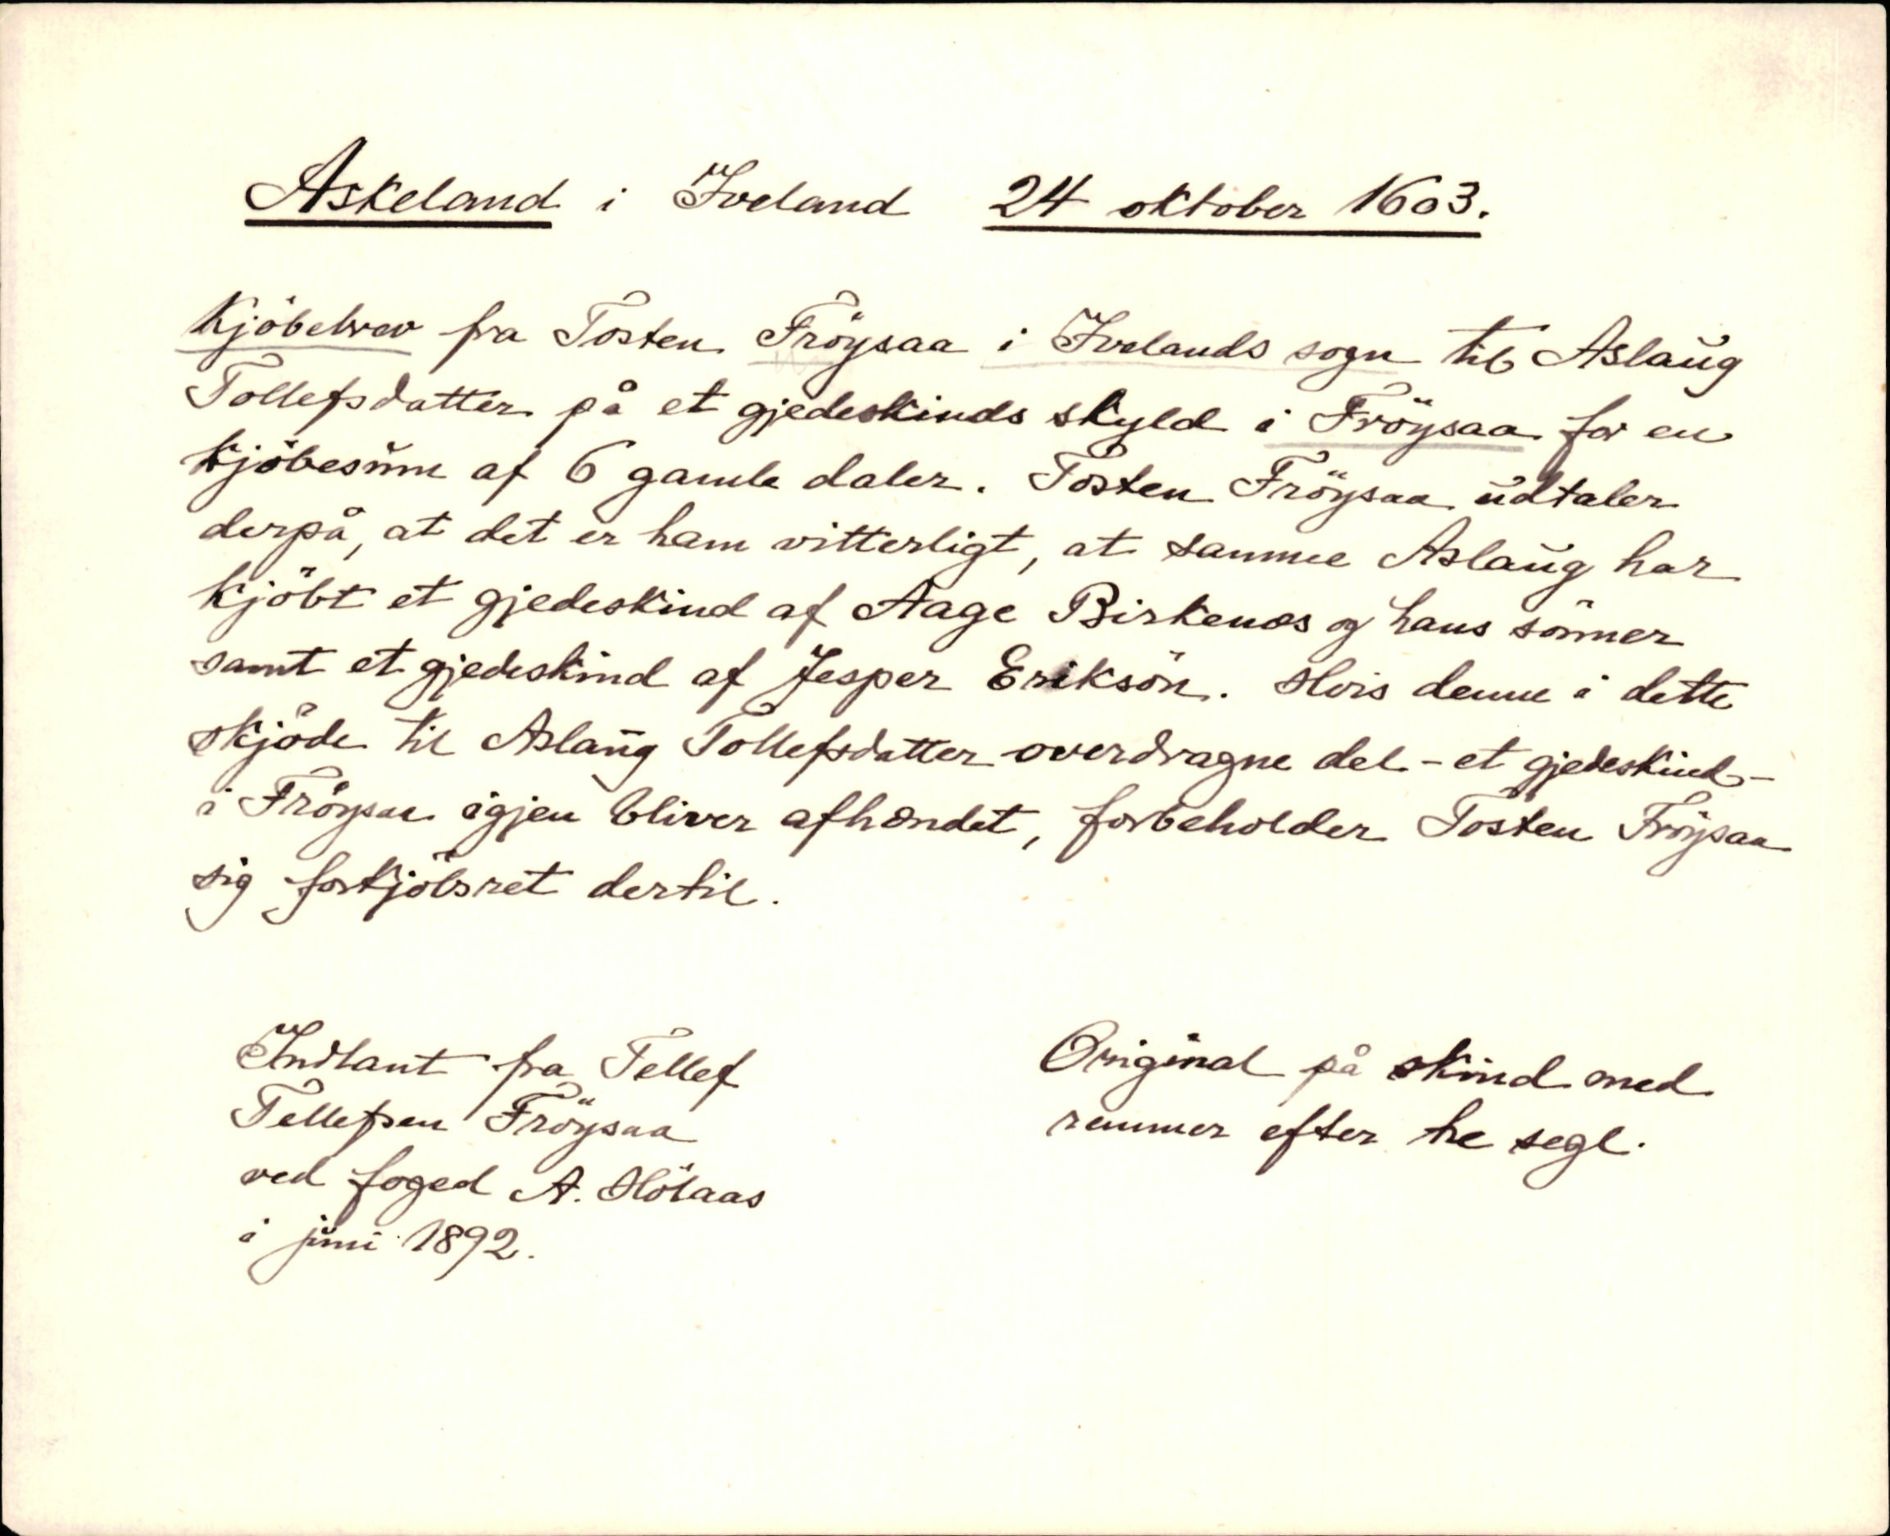 Askeland i Iveland 24 oktober 1603.
Kjöbebrev fra Tosten Fröysaa i Ivelands sogn til Aslaug
Tollefsdatter på et gjedeskinds skyld i Fröysaa for en
kjöbesum af 6 gamle daler. Tosten Fröysaa udtaler
derpå, at det er ham vitterligt, at samme Aslaug har
kjöbt et gjedeskind af Aage Birkenes og hans sönner
samt et gjedeskind af Jesper Eriksön. Hvis denne i dette
skjöde til Aslaug Tollefsdatter overdragne del - et gjedeskind -
i Fröysaa igjen bliver afhændet, forbeholder Tosten Fröysaa
sig forkjöbsret dertil.
Indlånt fra Tellef
Tellefsen Fröysaa
ved foged A. Hölaas
i juni 1892.
Original på skind med
remmer efter tre segl.